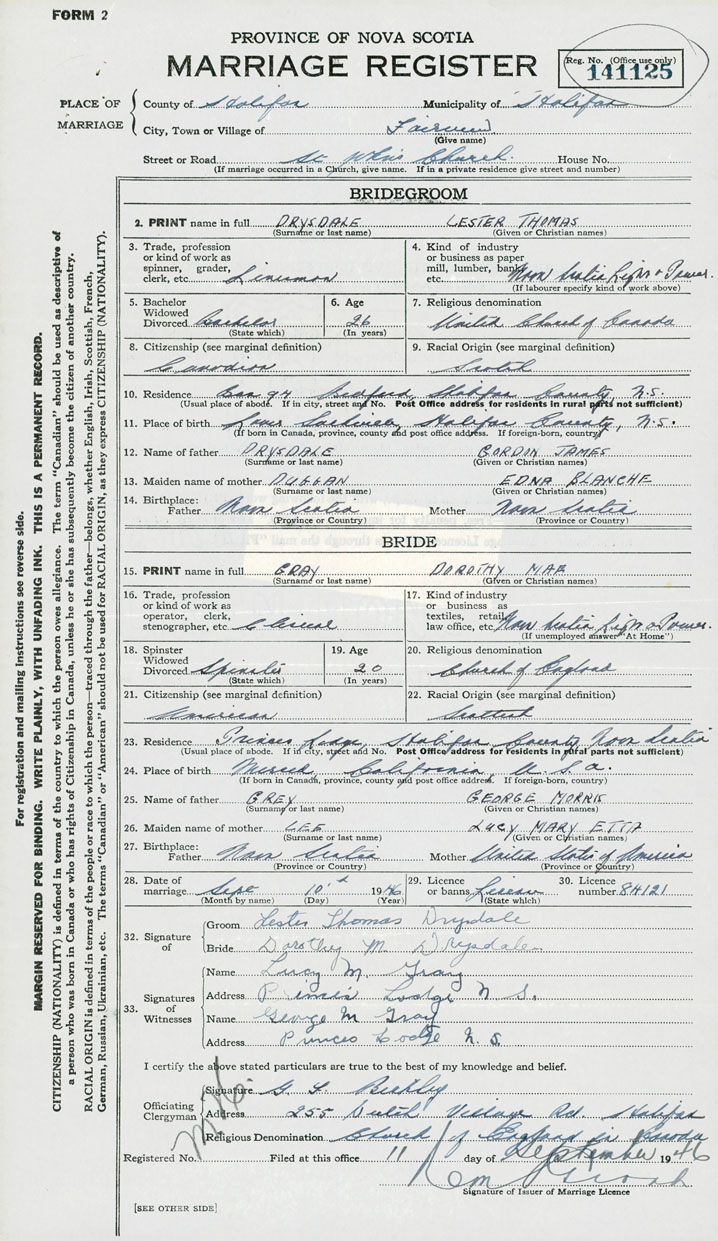 FORM 2
PROVINCE OF NOVA SCOTIA
MARRIAGE REGISTER
Reg. No. (Office use only)
141125
PLACE OF MARRIAGE
County of Halifax Municipality of Halifax
City, Town or Village of Fairview
(Give name)
Street or Road St. John's Church House No.
(If marriage occurred in a Church, give name. If in a private residence give street and number)
BRIDEGROOM
2. PRINT name in full DRYSDALE LESTER THOMAS
(Surname or last name) (Given or Christian names)
3. Trade, profession or kind of work as spinner, grader, clerk, etc. Lineman
4. Kind of industry or business as paper mill, lumber, bank, etc. Nova Scotia Light & Power.
(If labourer specify kind of work above)
5. Bachelor Widowed Divorced Bachelor
(State which)
6. Age 26
(In years)
7. Religious denomination United Church of Canada
8. Citizenship (see marginal definition) Canadian
9. Racial Origin (see marginal definition) Scotch
10. Residence Box 94 Bedford, Halifax County, N.S.
(Usual place of abode. If in city, street and No. Post Office address for residents in rural parts not sufficient)
11. Place of birth Sackville, Halifax County, N.S.
(If born in Canada, province, county and post office address. If foreign-born, country)
12. Name of father DRYSDALE GORDON JAMES
(Surname or last name) (Given or Christian names)
13. Maiden name of mother DUGGAN EDNA BLANCHE
(Surname or last name) (Given or Christian names)
14. Birthplace: Father Nova Scotia Mother Nova Scotia
(Province or Country) (Province or Country)
BRIDE
15. PRINT name in full GRAY DOROTHY MAE
(Surname or last name) (Given or Christian names)
16. Trade, profession or kind of work as operator, clerk, stenographer, etc. Clerical
17. Kind of industry or business as textiles, retail, law office, etc. Nova Scotia Light & Power.
(If unemployed answer "At Home")
18. Spinster Widowed Divorced Spinster
(State which)
19. Age 20
(In years)
20. Religious denomination Church of England
21. Citizenship (see marginal definition) American
22. Racial Origin (see marginal definition) Scottish
23. Residence Princes Lodge, Halifax County Nova Scotia
(Usual place of abode. If in city, street and No. Post Office address for residents in rural parts not sufficient)
24. Place of birth Merced California U.S.A.
(If born in Canada, province, county and post office address. If foreign-born, country)
25. Name of father GREY GEORGE MORRIS
(Surname or last name) (Given or Christian names)
26. Maiden name of mother LEE LUCY MARY ETTA
(Surname or last name) (Given or Christian names)
27. Birthplace: Father Nova Scotia Mother United States of America
(Province or Country) (Province or Country)
28. Date of marriage Sept 10th 1946
(Month by name) (Day) (Year)
29. Licence or banns License
(State which)
30. Licence number 84121
32. Signature of
Groom Lester Thomas Drysdale
Bride Dorothy M. Drysdale
33. Signatures of Witnesses
Name Lucy M. Gray
Address Princes Lodge N S.
Name George M Gray
Address Princes Lodge N. S.
I certify the above stated particulars are true to the best of my knowledge and belief.
Officiating Clergyman
Signature G. L.
Address 255 Dutch Village Rd. Halifax
Religious Denomination Church of England in Canada
Registered No. Filed at this office 11 day of September 1946
Signature of Issuer of Marriage Licence
[SEE OTHER SIDE]
For registration and mailing instructions see reverse side.
MARGIN RESERVED FOR BINDING. WRITE PLAINLY, WITH UNFADING INK. THIS IS A PERMANENT RECORD.
CITIZENSHIP (NATIONALITY) is defined in terms of the country to which the person owes allegiance. The term "Canadian" should be used as descriptive of
a person who was born in Canada or who has rights of Citizenship in Canada, unless he or she has subsequently become the citizen of another country.
RACIAL ORIGIN is defined in terms of the people or race to which the person—traced through the father—belongs, whether English, Irish, Scottish, French,
German, Russian, Ukrainian, etc. The terms "Canadian" or "American" should not be used for RACIAL ORIGIN, as they express CITIZENSHIP (NATIONALITY).